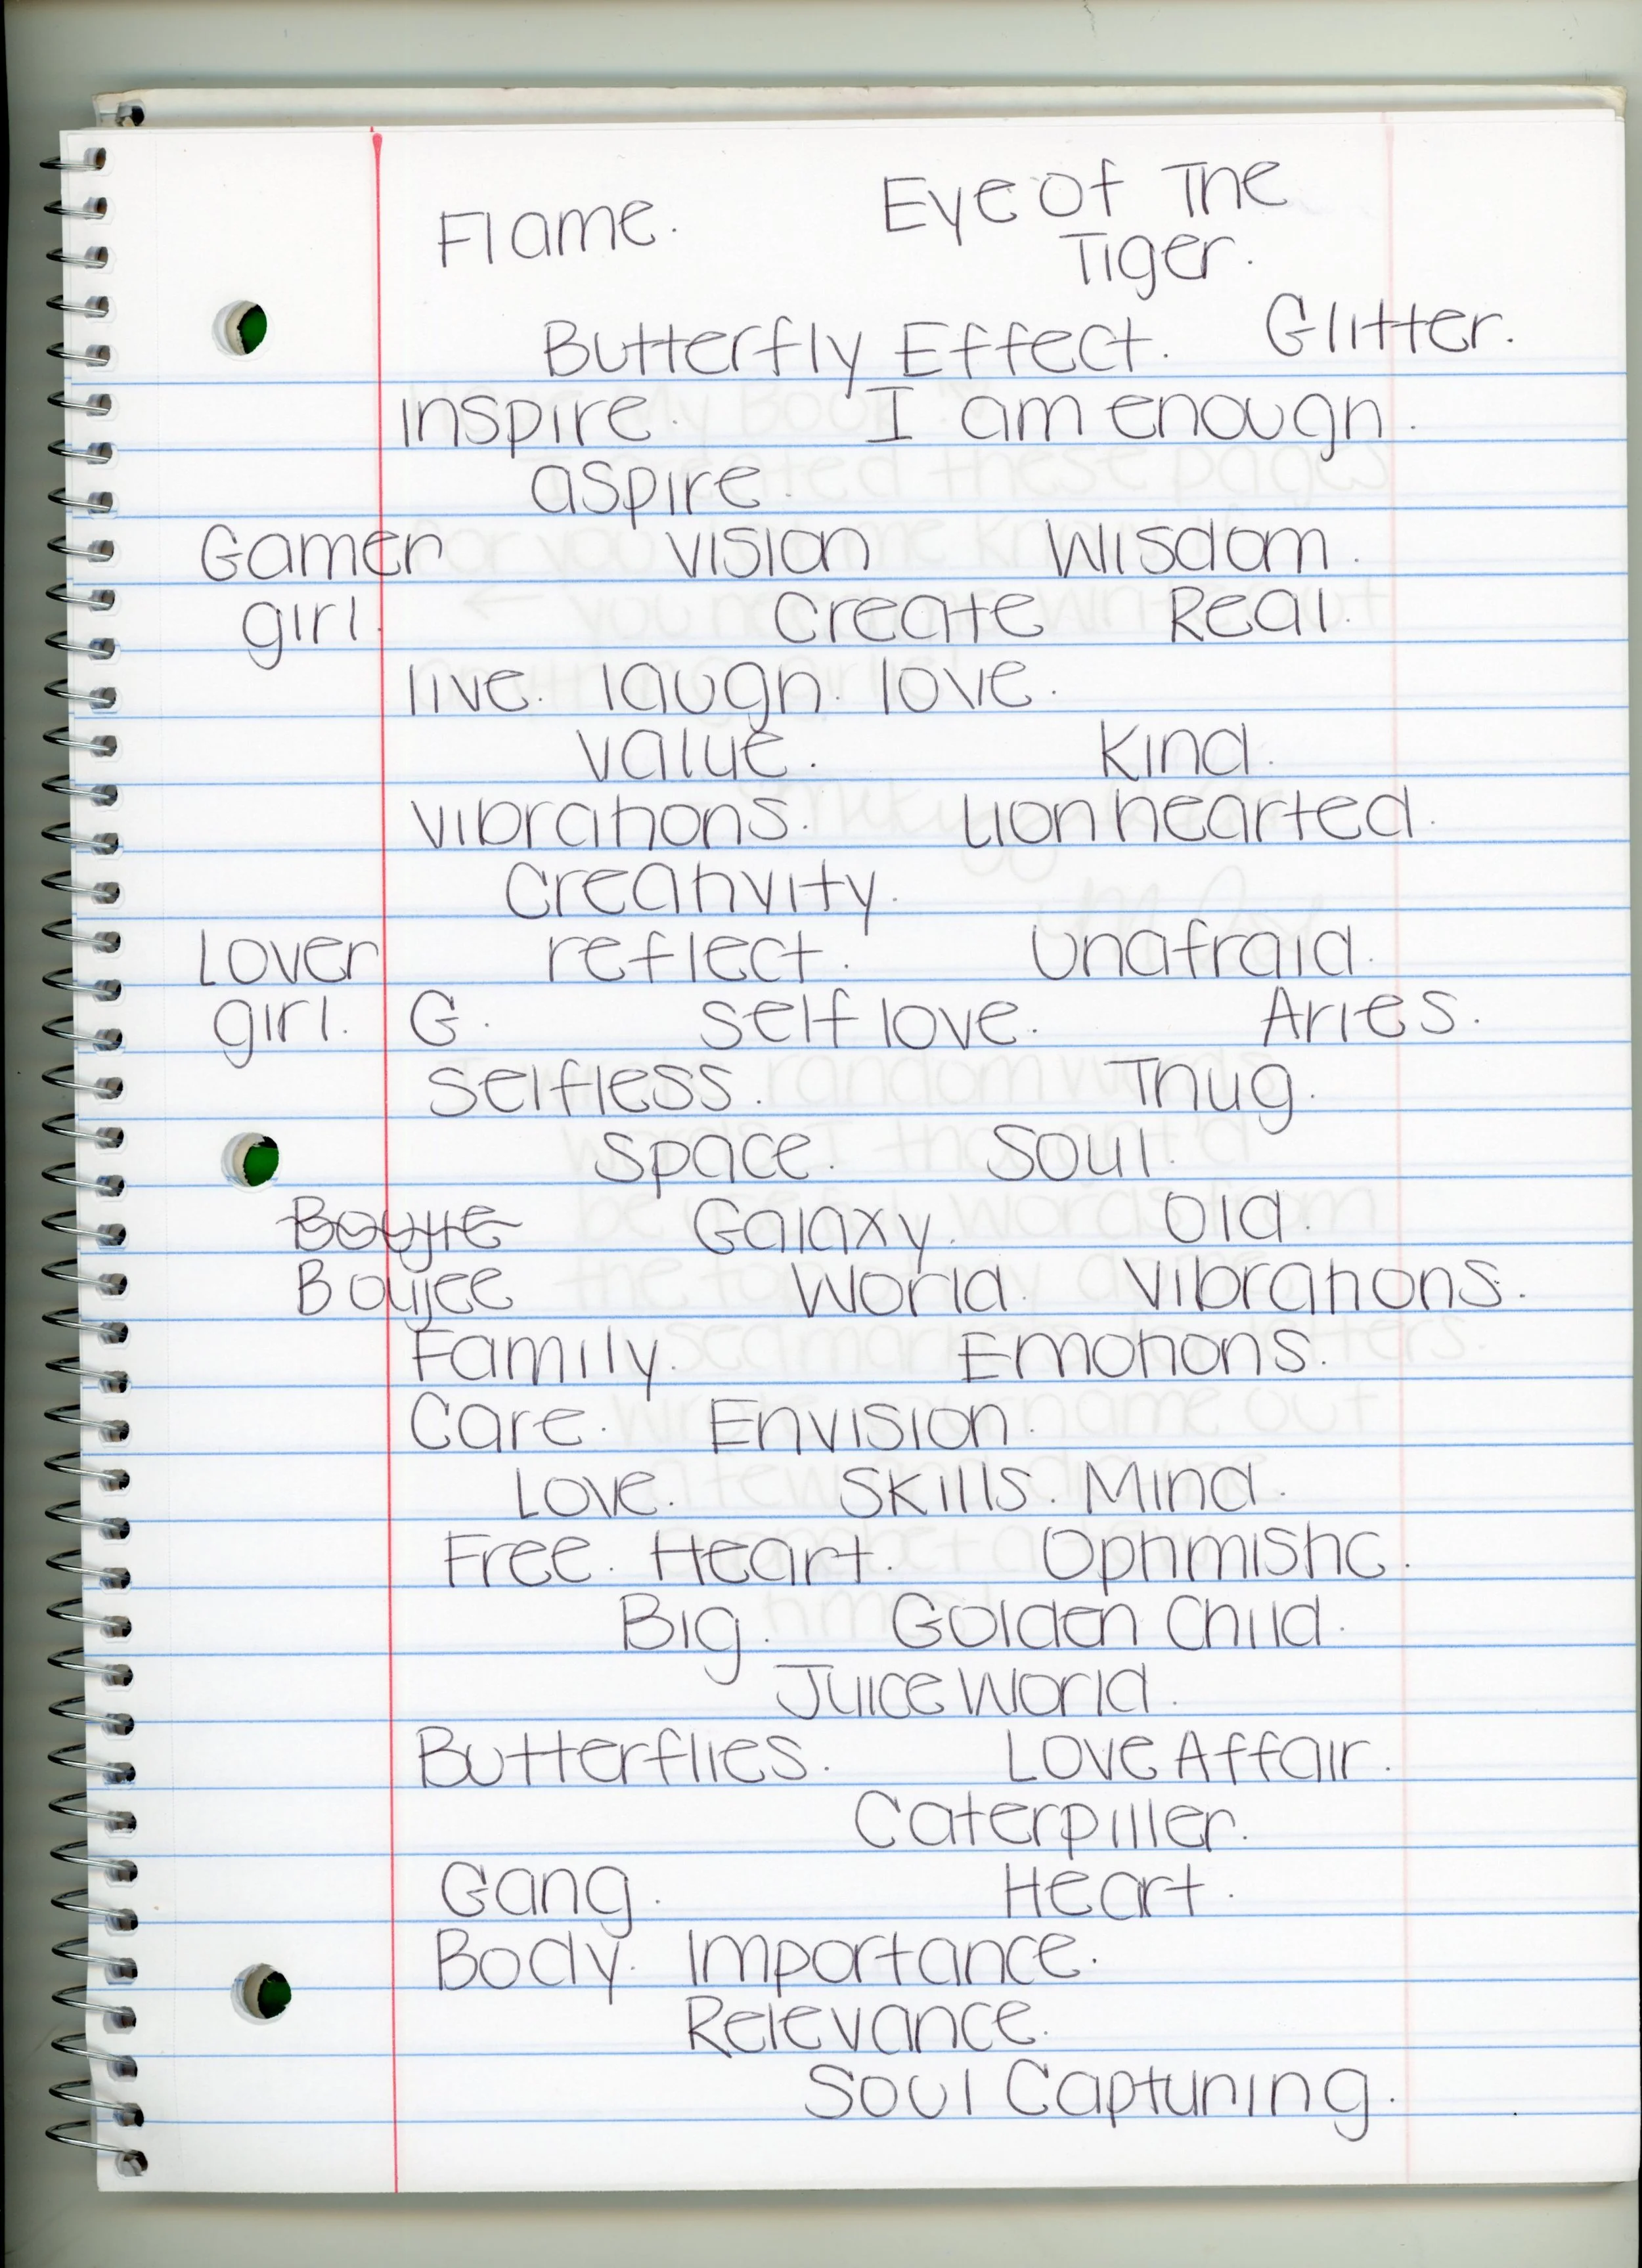 Flame. Eye Of The
Tiger.
Butterfly Effect. Glitter.
inspire. I am enough.
aspire.
Gamer vision Wisdom.
girl. create Real.
live. laugh. love.
value. Kind.
vibrations. Lion hearted.
Creativity.
Lover reflect. Unafraid.
girl. G. self love. Aries.
selfless. Thug.
space. Soul.
Boujie Galaxy. Old.
Boujee World. Vibrations.
Family. Emotions.
Care. Envision.
Love. Skills. Mind.
Free. Heart. Optimistic.
Big. Golden Child.
Juice World.
Butterflies. Love Affair.
Caterpiller.
Gang. Heart.
Body. Importance.
Relevance.
Soul Capturing.